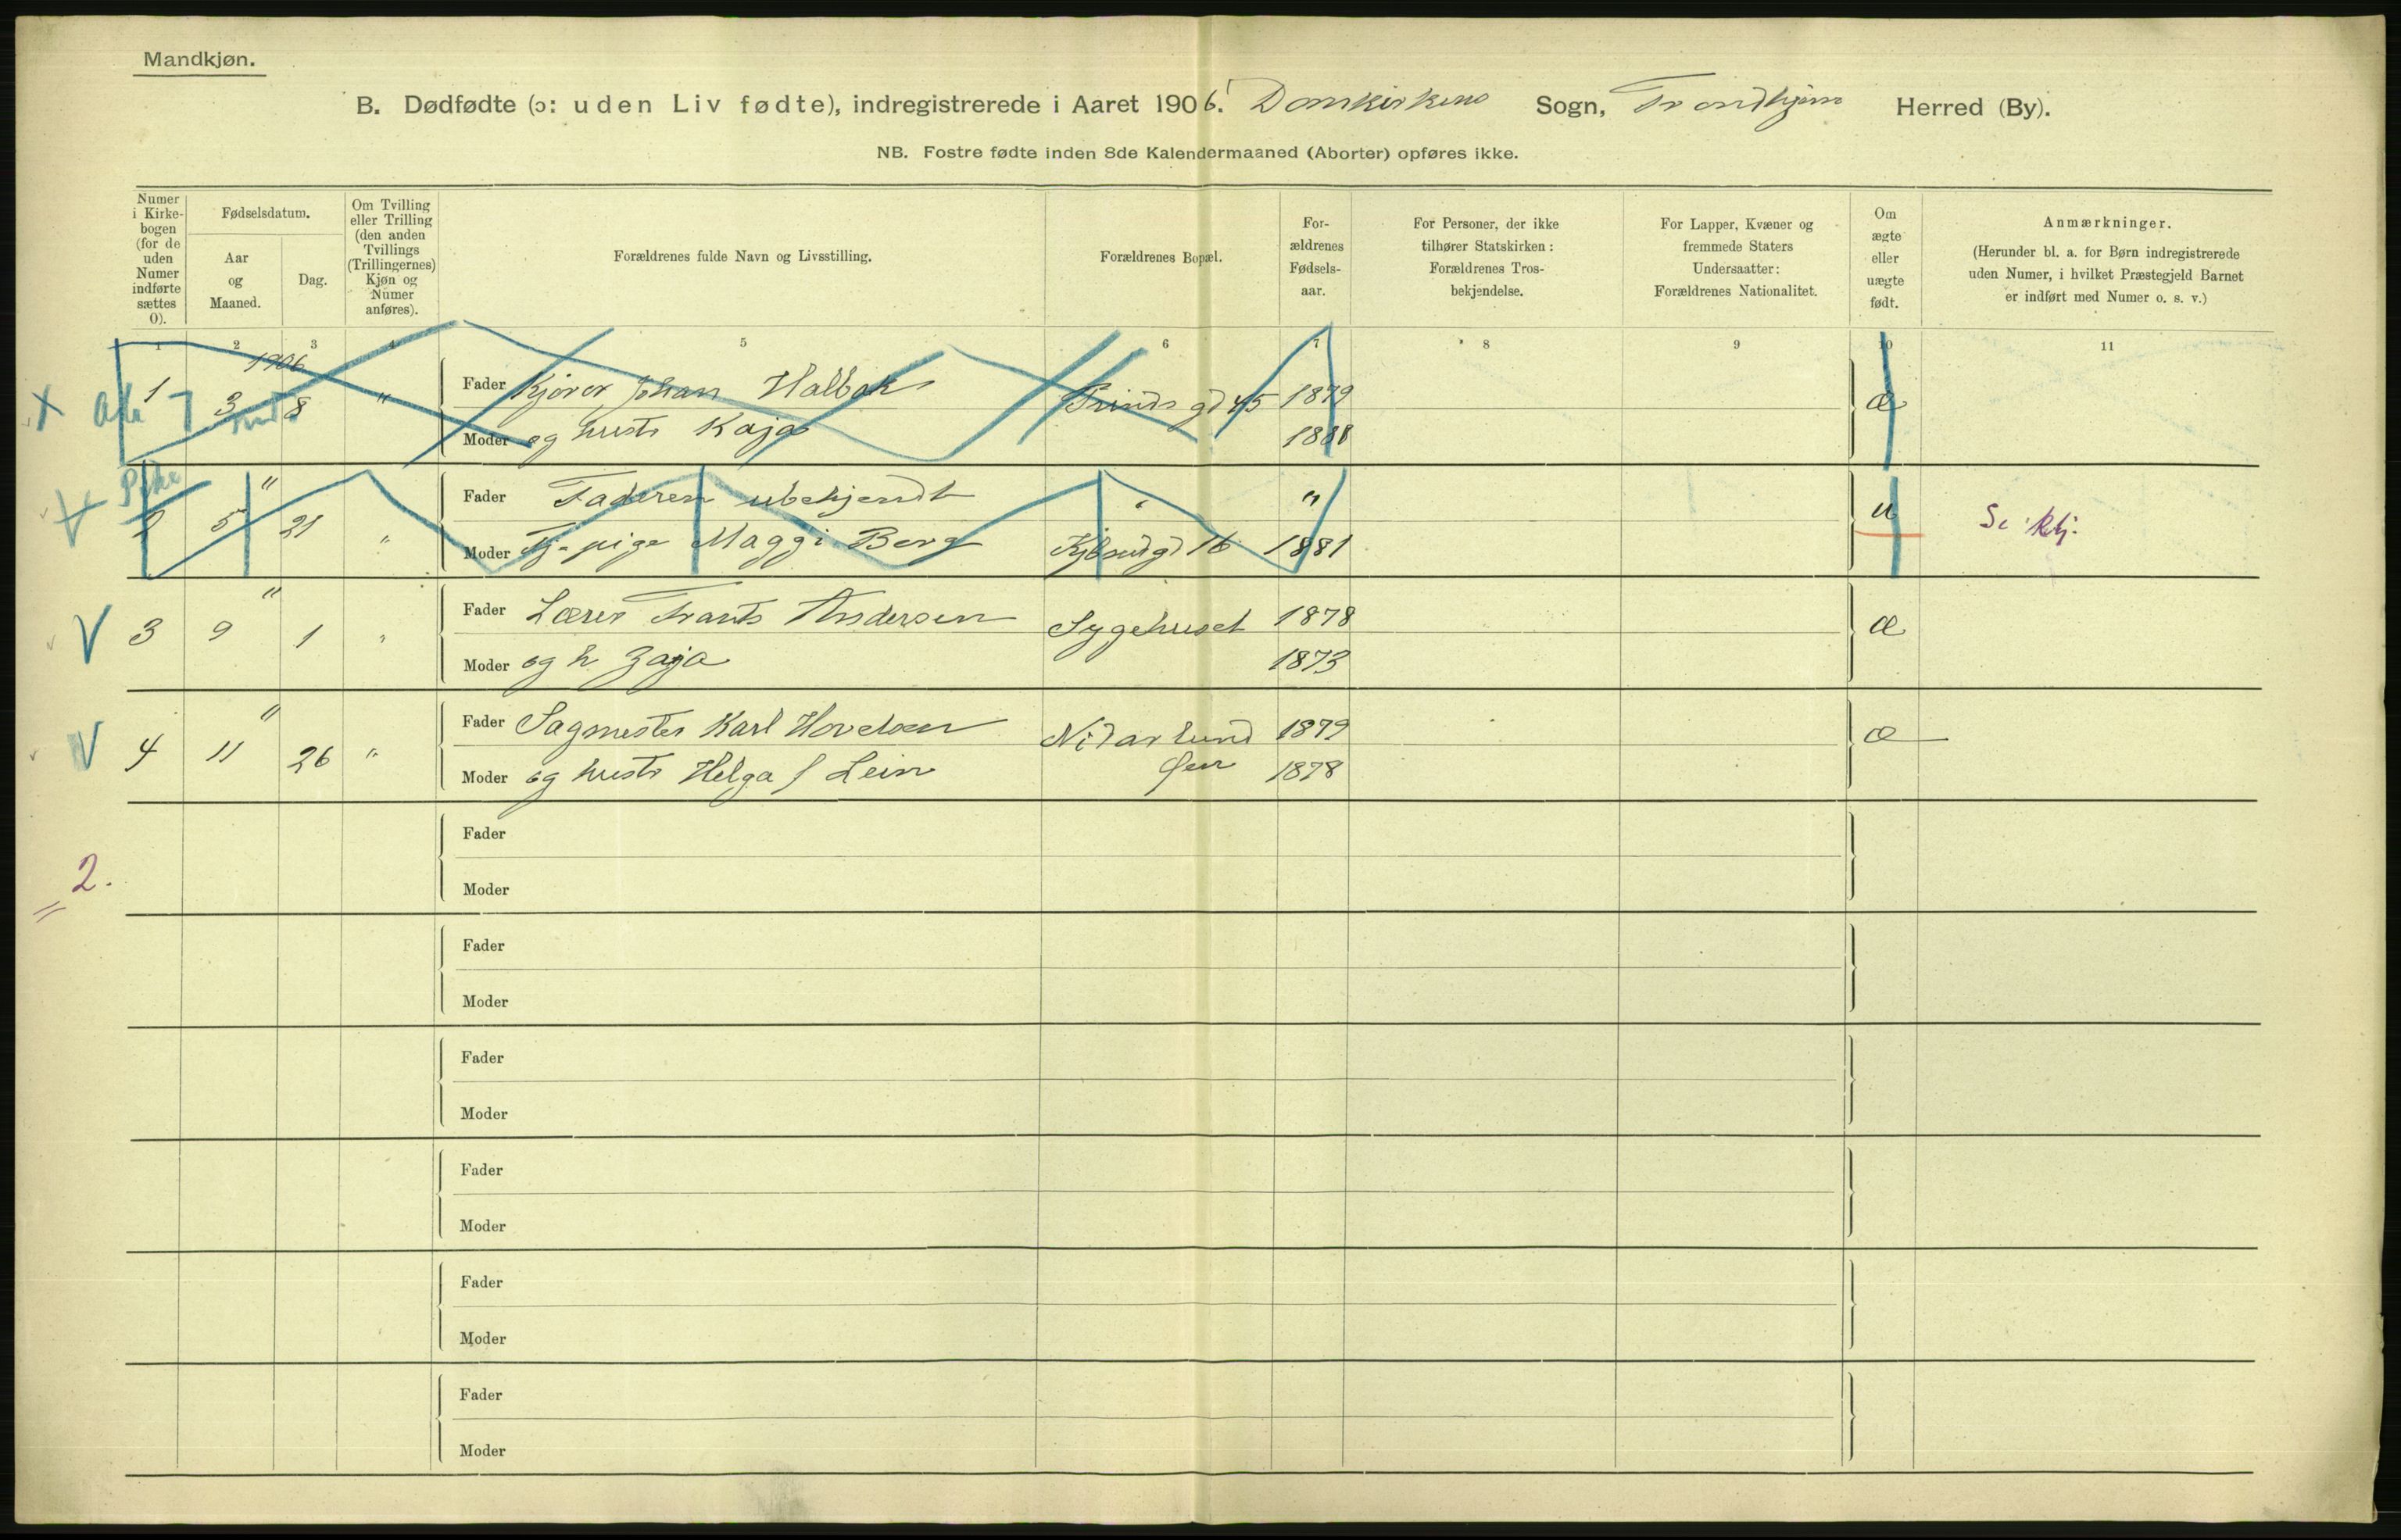 Mandkjøn.
B. Dødfødte (ɔ: uden Liv fødte), indregistrerede i Aaret 1906. Domkirkens Sogn, Trondhjem Herred (By).
NB. Fostre fødte inden 8de Kalendermaaned (Aborter) opføres ikke.
Numer i Kirke-bogen (for de uden Numer indførte sættes 0).
Fødselsdatum.
Aar og Maaned.
Dag.
Om Tvilling eller Trilling (den anden Tvillings (Trillingernes) Kjøn og Numer anføres).
Forældrenes fulde Navn og Livsstilling.
Forældrenes Bopæl.
For-ældrenes Fødsels-aar.
For Personer, der ikke tilhører Statskirken: Forældrenes Tros-bekjendelse.
For Lapper, Kvæner og fremmede Staters Undersaatter: Forældrenes Nationalitet.
Om ægte eller uægte født.
Anmærkninger.
(Herunder bl. a. for Børn indregistrerede uden Numer, i hvilket Præstegjeld Barnet er indført med Numer o. s. v.)
1 2 3 4 5 6 7 8 9 10 11
1906
1 3 8 " Fader Kjører Johan Halbak Prinds gd 45 1879 æ
Moder og hustr Kaja 1888
"
2 5 21 " Fader Faderen ubekjendt " " u
Moder Tj. pige Maggi Berg 16 1881
"
V 3 9 1 " Fader Lærer Frants Andersen Sygehuset 1878 æ
Moder og h Zaja 1873
"
V 4 11 26 " Fader Sagmester Karl Hovdaen Nidarlund 1879 æ
Moder og hustr Helga f Lein 1878
Fader
2.
Moder
Fader
Moder
Fader
Moder
Fader
Moder
Fader
Moder
Fader
Moder